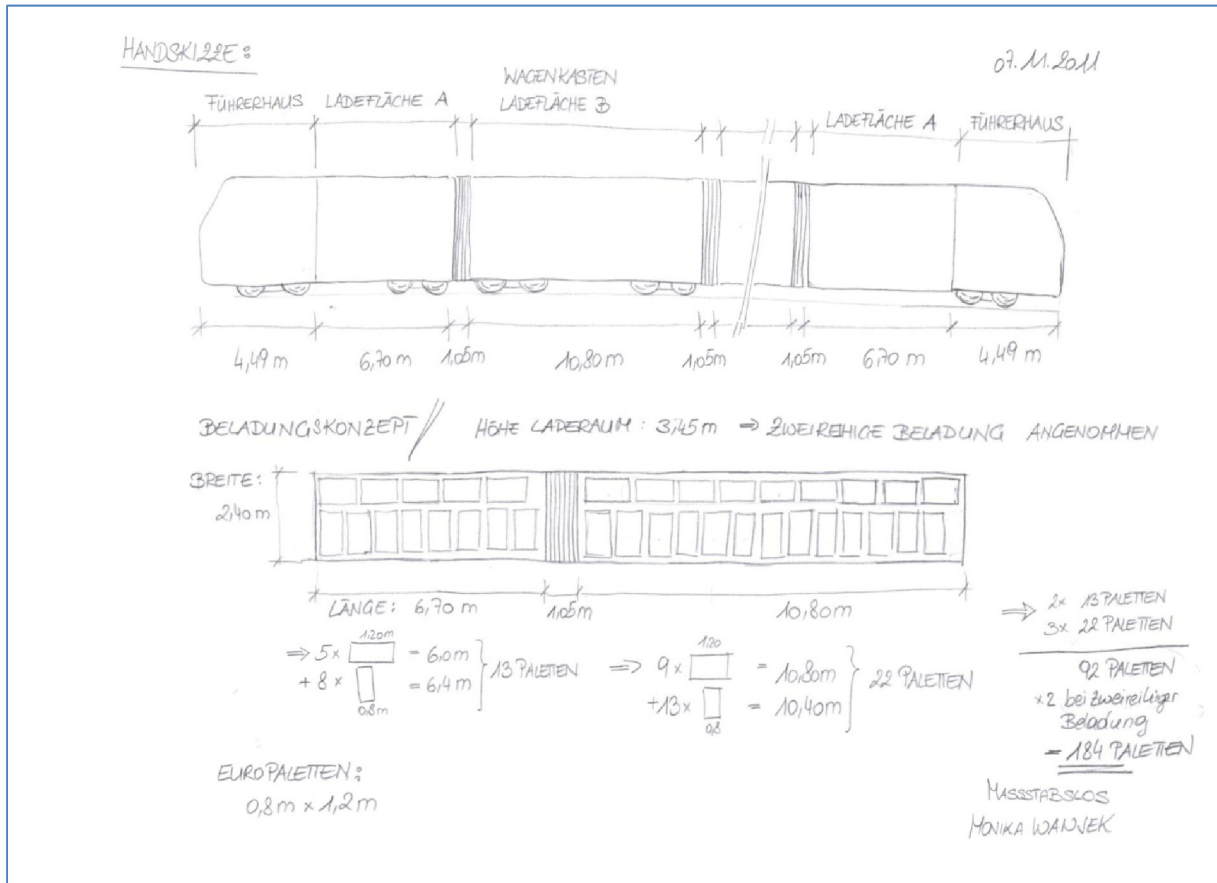 HANDSKIZZE:
07.11.2011
WAGENKASTEN
FÜHRERHAUS LADEFLÄCHE A LADEFLÄCHE B LADEFLÄCHE A FÜHRERHAUS
4,49 m 6,70 m 1,05m 10,80m 1,05m 1,05m 6,70 m 4,49 m
BELADUNGSKONZEPT / HÖHE LADERAUM: 3,45m ⇒ ZWEIREIHIGE BELADUNG ANGENOMMEN
BREITE:
2,40m
LÄNGE: 6,70 m 1,05m 10,80m
1,20m
⇒ 5x = 6,0m
+ 8x = 6,4m
0,8m
13 PALETTEN
1,20
⇒ 9x = 10,80m
+13x = 10,40m
0,8
22 PALETTEN
⇒ 2x 13 PALETTEN
3x 22 PALETTEN
92 PALETTEN
x2 bei zweireihiger
Beladung
= 184 PALETTEN
EUROPALETTEN:
0,8m x 1,2m
MASSSTABSLOS
MONIKA WANJEK